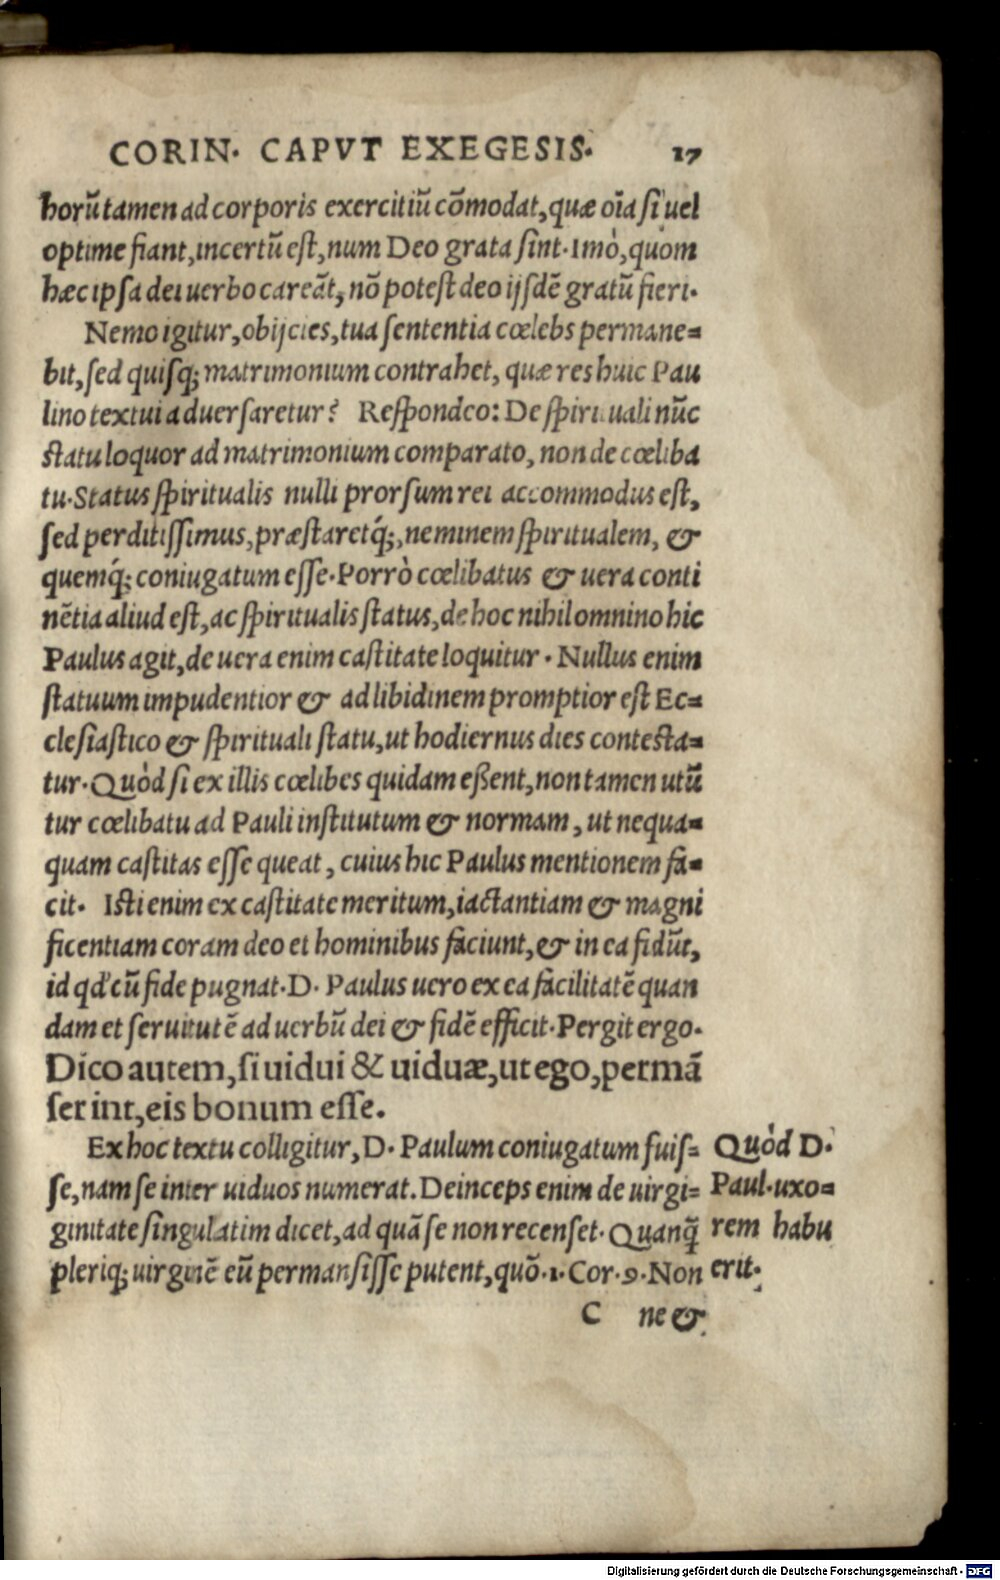 CORIN. CAPVT EXEGESIS. 17
horũ tamen ad corporis exercitiũ cõmodat, quæ oĩa si uel
optime fiant, incertũ est, num Deo grata sint. Imò, quom
hæc ipsa dei uerbo careãt, nõ potest deo ijsdẽ gratũ fieri.
Nemo igitur, obijcies, tua sententia cœlebs permane=
bit, sed quisq; matrimonium contrahet, quæ res huic Pau
lino textui aduersaretur? Respondeo: De spirituali nũc
statu loquor ad matrimonium comparato, non de cœliba
tu. Status spiritualis nulli prorsum rei accommodus est,
sed perditissimus, præstaretq́;, neminem spiritualem, &
quemq́; coniugatum esse. Porrò cœlibatus & uera conti
nẽtia aliud est, ac spiritualis status, de hoc nihil omnino hic
Paulus agit, de uera enim castitate loquitur. Nullus enim
statuum impudentior & ad libidinem promptior est Ec=
clesiastico & spirituali statu, ut hodiernus dies contesta=
tur. Quòd si ex illis cœlibes quidam eßent, non tamen utũ
tur cœlibatu ad Pauli institutum & normam, ut nequa=
quam castitas esse queat, cuius hic Paulus mentionem fa=
cit. Isti enim ex castitate meritum, iactantiam & magni
ficentiam coram deo et hominibus faciunt, & in ea fidũt,
id qd' cũ fide pugnat. D. Paulus uero ex ea facilitatẽ quan
dam et seruitutẽ ad uerbũ dei & fidẽ efficit. Pergit ergo.
Dico autem, si uidui & uiduæ, ut ego, permã
serint, eis bonum esse.
Ex hoc textu colligitur, D. Paulum coniugatum fuis=
se, nam se inter uiduos numerat. Deinceps enim de uirgi=
ginitate singulatim dicet, ad quã se non recenset. Quanq̃
pleriq; uirginẽ eũ permansisse putent, quõ. 1. Cor. 9. Non
Quòd D.
Paul. uxo=
rem habu
erit.
C ne &
Digitalisierung gefördert durch die Deutsche Forschungsgemeinschaft - DFG